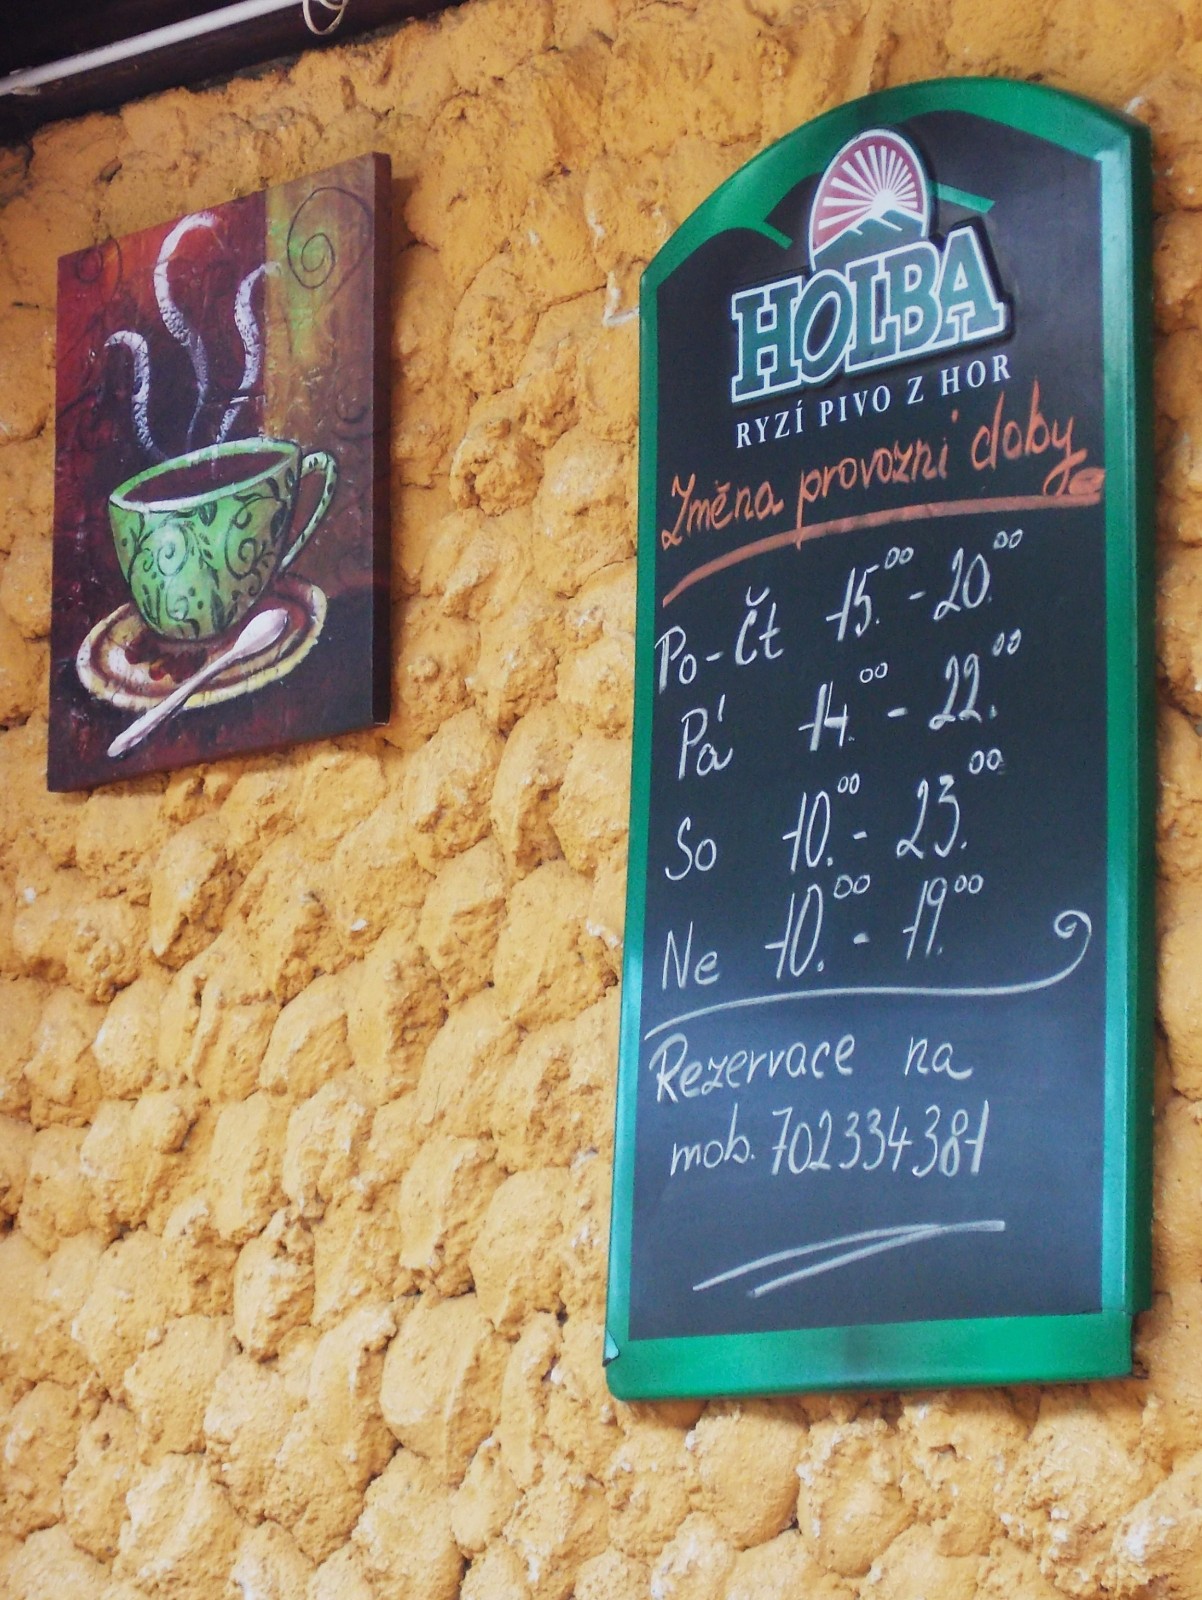 HOLBA
RYZÍ PIVO Z HOR
Změna provozní doby
Po-Čt 15.00 - 20.00
Pá 14.00 - 22.00
So 10.00 - 23.00
Ne 10.00 - 19.00
Rezervace na
mob. 702334381